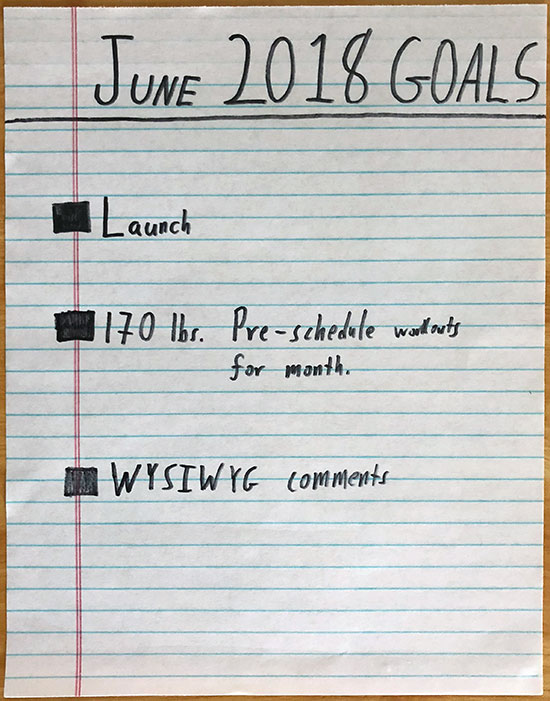 JUNE 2018 GOALS
Launch
170 lbs. Pre-schedule workouts
for month.
WYSIWYG comments